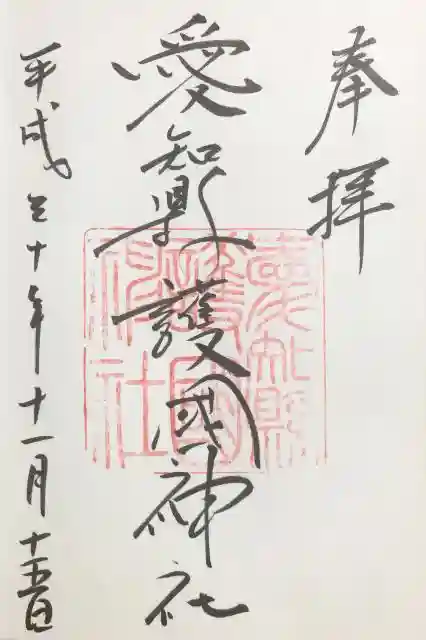 奉拝
愛知縣護國神社
平成三十年十一月十五日
愛知縣
護國
神社